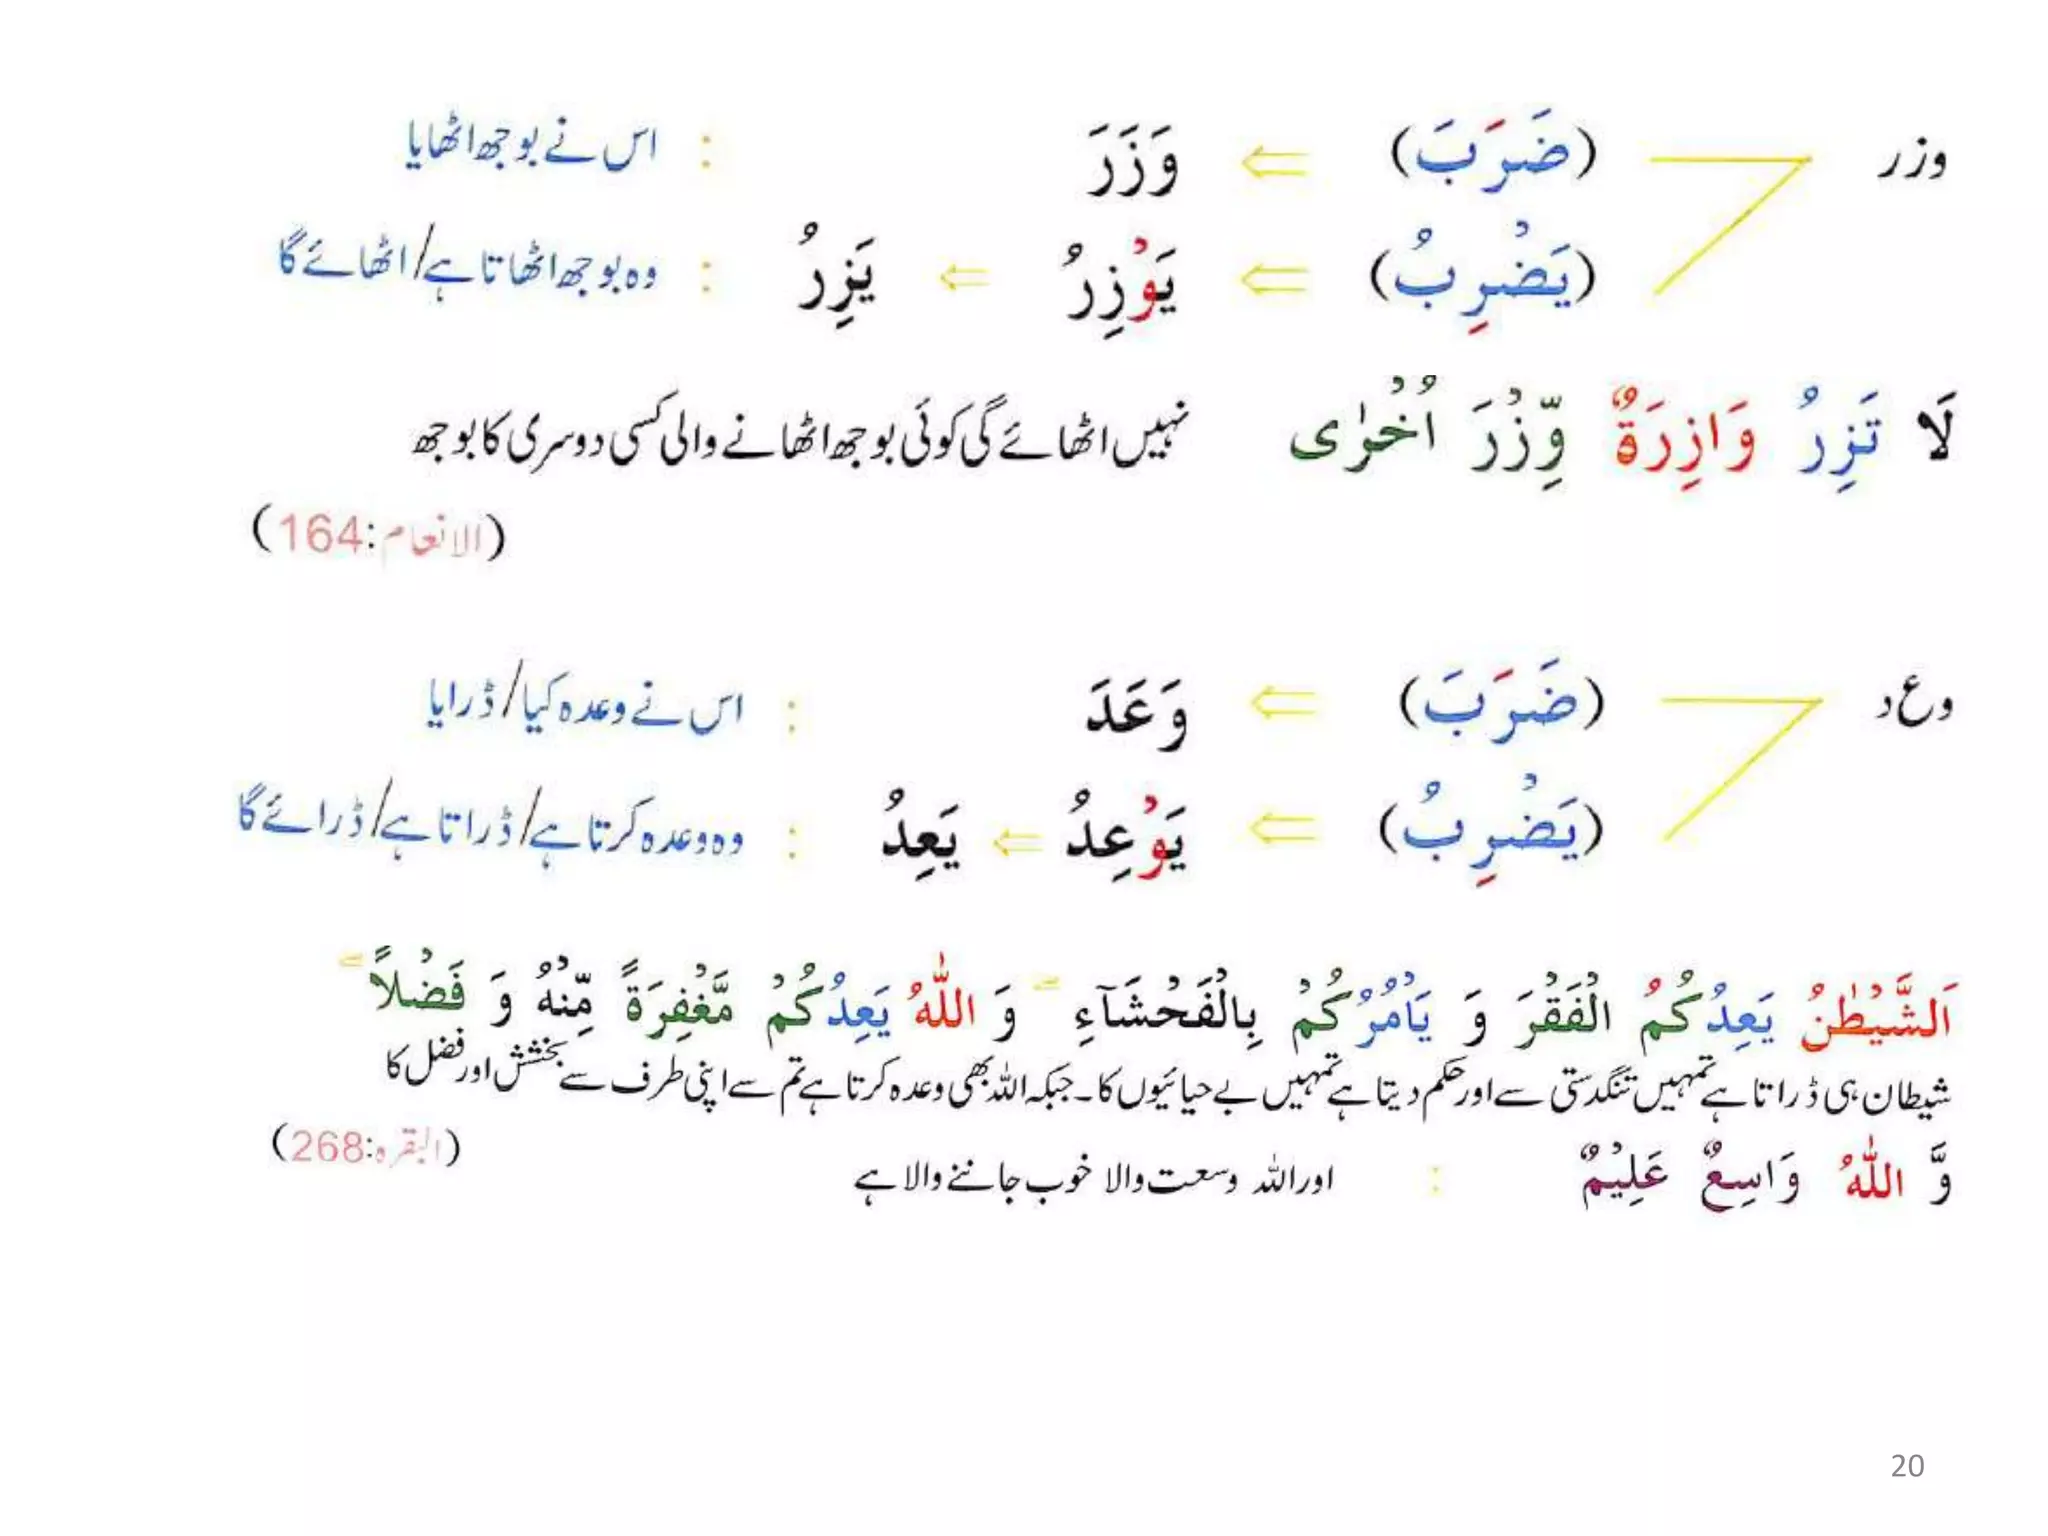 وزر (ضَرَبَ) ⇐ وَزَرَ : اس نے بوجھ اٹھایا
(يَضْرِبُ) ⇐ يَوْزِرُ ⇐ يَزِرُ : وہ بوجھ اٹھاتا ہے/اٹھائے گا
لَا تَزِرُ وَازِرَةٌ وِّزْرَ اُخْرٰى نہیں اٹھائے گی کوئی بوجھ اٹھانے والی کسی دوسری کا بوجھ
(الانعام:164)
وعد (ضَرَبَ) ⇐ وَعَدَ : اس نے وعدہ کیا/ڈرایا
(يَضْرِبُ) ⇐ يَوْعِدُ ⇐ يَعِدُ : وہ وعدہ کرتا ہے/ڈراتا ہے/ڈرائے گا
اَلشَّيْطٰنُ يَعِدُكُمُ الْفَقْرَ وَ يَاْمُرُكُمْ بِالْفَحْشَآءِ وَ اللّٰهُ يَعِدُكُمْ مَّغْفِرَةً مِّنْهُ وَ فَضْلًا
شیطان ہی ڈراتا ہے تمہیں تنگدستی سے اور حکم دیتا ہے تمہیں بے حیائیوں کا۔ جبکہ اللہ بھی وعدہ کرتا ہے تم سے اپنی طرف سے بخشش اور فضل کا
(البقرہ:268)
وَّ اللّٰهُ وَاسِعٌ عَلِيْمٌ : اور اللہ وسعت والا خوب جاننے والا ہے
20